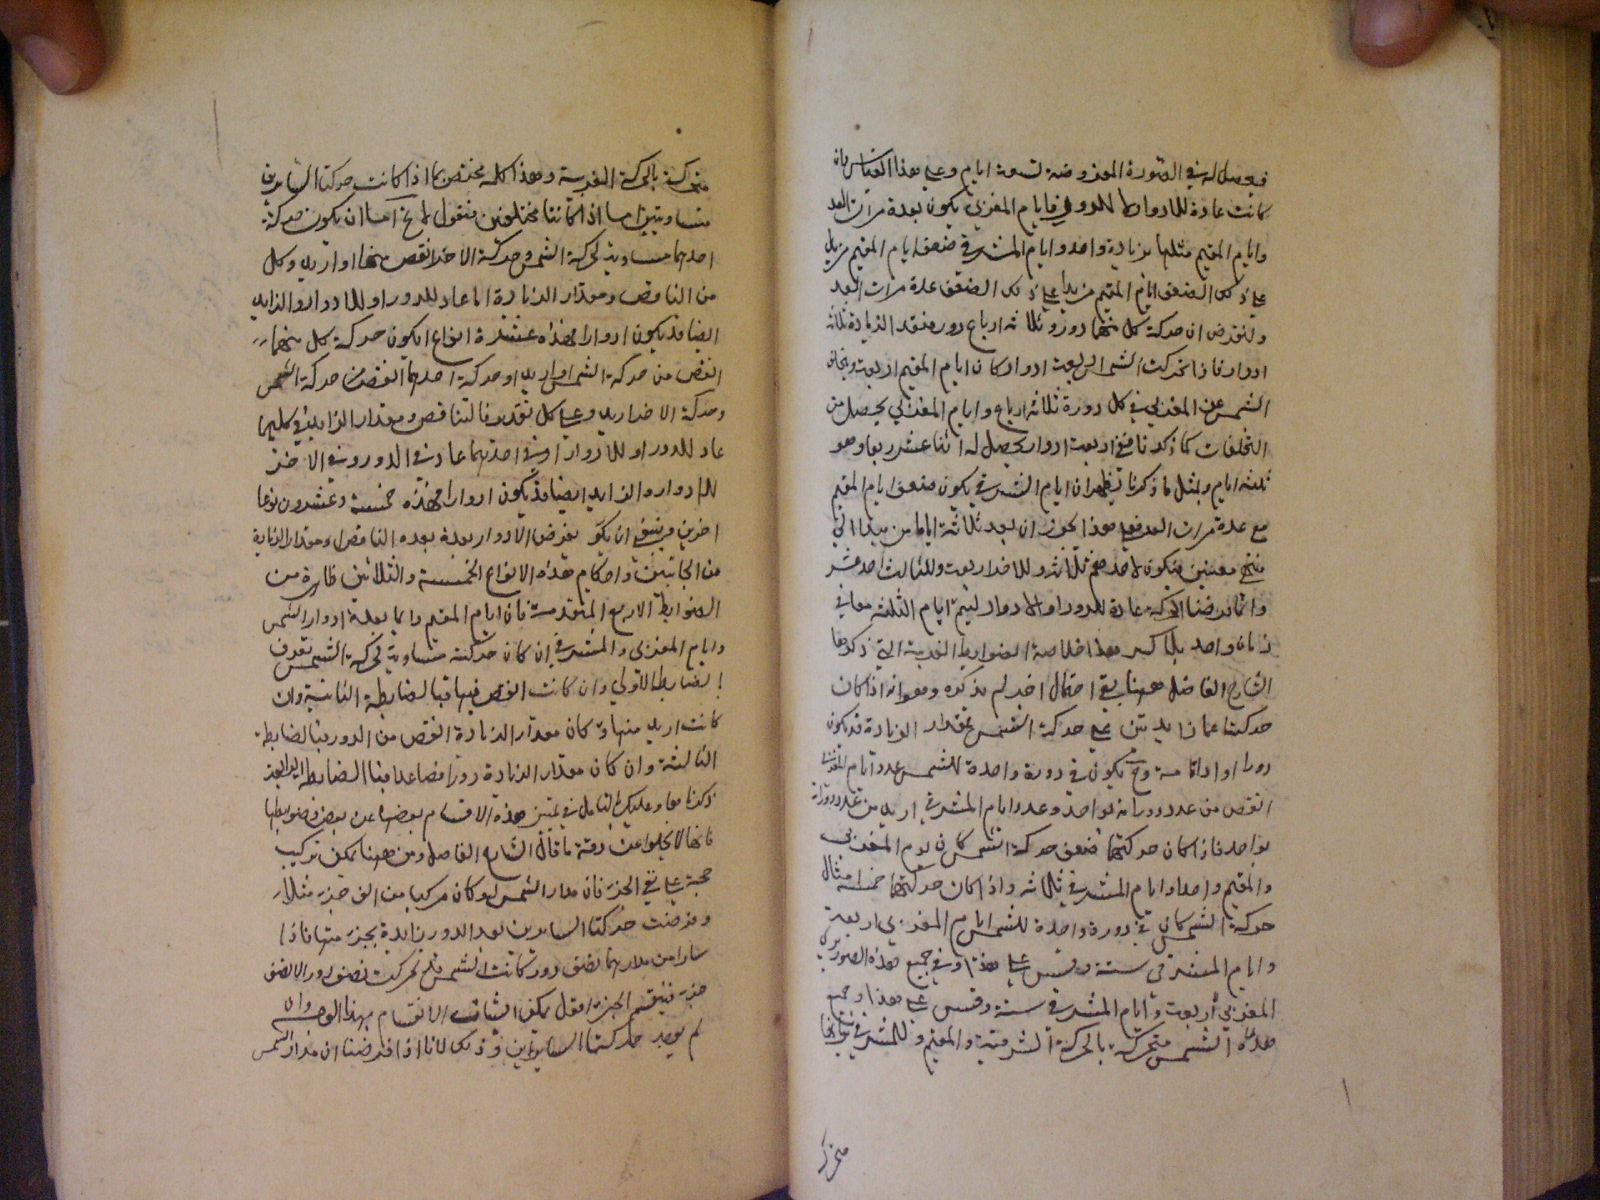 فيحصل له في الصورة المفروضة تسعة ايام وعلى هذا القياس وان
كانت عادة للادوار لا للدور فايام المغربي يكون بعدة مرات العد
وايام المقيم مثلها بزيادة واحد وايام المشرقي ضعف ايام المقيم مزيدا
على ذلك الضعف ايام المقيم مزيدا على ذلك الضعف عدة مرات العد
ولنفرض ان حركة كل منهما دور وثلاثة ارباع دور فبقدر الزيادة ثلاثة
ادوار فاذا تحركت الشمس اربعة ادوار كان ايام المقيم اربعة ويتخلف
الشمس عن المغربي في كل دورة ثلاثة ارباع وايام المغربي يحصل من
التخلفات كما ذكرنا ففي اربعة ادوار يحصل له اثنا عشر ربعا وهو
ثلثه ايام وبمثل ما ذكرنا يظهر ان ايام المشرقي يكون ضعف ايام المقيم
مع عدة مرات العد فعلى هذا يجوز ان يعد ثلاثة اياما من مبدا الى
منتهى معينين فيكون لاحدهم ثلاثة وللاخر اربعة وللثالث احد عشر
وانما فرضنا الحركة عادة للدور او الادوار ليتم ايام الثلثة معا في
زمان واحد بلا كسر هذا خلاصة الضوابط الغريبة التي ذكرها
الشارح الفاضل ههنا بقي احتمال اخر لم يذكره وهو انه اذا كان
حركتاهما زايدتين على حركة الشمس بمقدار الزيادة قد يكون
دورا او ادوارا تامة وح يكون في دورة واحدة للشمس عدد ايام المغربي
انقص من عدد دوراته بواحد وعدد ايام المشرقي ازيد من عدد دوراته
بواحد فاذا كان حركتهما ضعف حركة الشمس كان يوم المغربي
والمقيم واحدا وايام المشرقي ثلاثة واذا كان حركتهما خمسة امثال
حركة الشمس كان في دورة واحدة للشمس ايام المغربي اربعة
وايام المشرقي ستة وقس على هذا وفي جميع هذه الصور يكون
المغربي اربعة وايام المشرقي ستة وقس على هذا وجميع
هذه الشمس متحركة بالحركة الشرقية والمقيم وللمشرقي
متحركة
متحركة بالحركة الغربية وهذا كله مختص بما اذا كانت حركتا السايرين
متساويتين اما اذا كانتا مختلفتين فنقول ح اما ان يكون حركة
احدهما مساوية لحركة الشمس وحركة الاخر انقص منها او ازيد وكل
من الناقص ومقدار الزيادة اما عاد للدور او للادوار والزايد
ايضا قد يكون ادوارا فهذه عشرة انواع او يكون حركة كل منهما
انقص من حركة الشمس او ازيد او حركة احدهما انقص من حركة الشمس
وحركة الاخر ازيد وعلى كل تقدير فالناقص ومقدار الزايد في كليهما
عاد للدور او للادوار او في احدهما عاد في الدور وفي الاخر
للادوار والزايد ايضا قد يكون ادوارا فهذه خمسة وعشرون نوعا
اخرين وينبغي ان يكون يفرض الادوار بعدة يعده الناقص او مقدار الزيادة
من الجانبين واحكام هذه الانواع الخمسة والثلاثين ظاهرة من
الضوابط الاربع المتقدمة فان ايام المقيم دايما بعدة ادوار الشمس
وايام المغربي والمشرقي ان كان حركته مساوية لحركة الشمس تعرف
بالضابطة الاولى وان كانت انقص منها فبالضابطة الثانية وان
كانت ازيد منها وكان مقدار الزيادة انقص من الدور فبالضابطة
الثالثة وان كان مقدار الزيادة دورا فصاعدا فبالضابطة الرابعة
ذكرناها وعليك بالتامل في تميز هذه الاقسام بعضها عن بعض وضوابطها
فانها لا يخلوا عن دقة ما قال الشارح الفاضل ومن ههنا يمكن تركيب
حجة على نفي الجزء فان مدار الشمس لو كان مركبا من الف جزء مثلا
وفرضت حركتا السايرين بعد الدور زايدة بجزء منها فاذا
سارا من مداريهما نصف دور كانت الشمس قد تحركت نصف دور الا نصف
جزء فينقسم الجزء اقول يمكن اثبات الانقسام بهذا الوجه وان
لم يعتبر حركتا السايرين وذلك لانا اذا فرضنا ان مدار الشمس